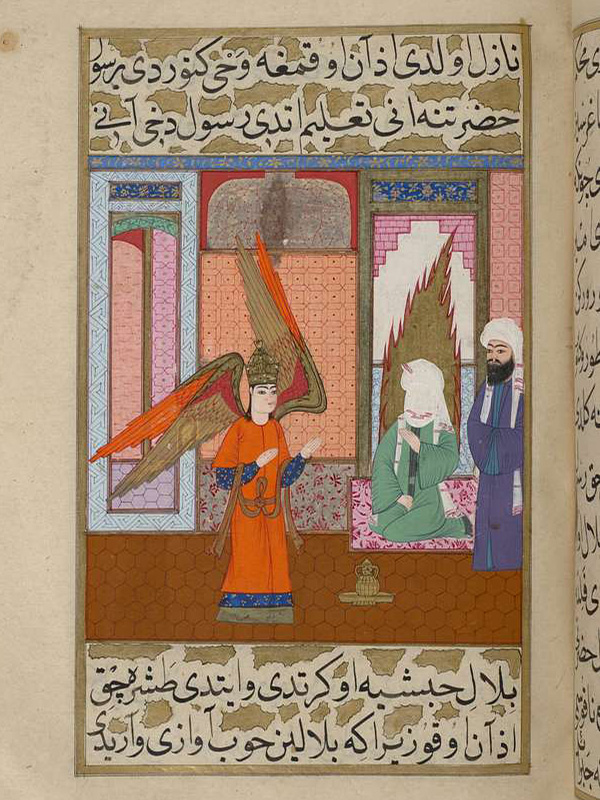 نازل اولدی اذآن اوقمغه وحی کتوردی رسول
حضرتنه انی تعلیم اتدی رسول دخی آنی
بلال حبشیه اوکرتدی و ایتدی طشره چق
اذآن اوقو زیرا که بلالین خوب آوازی واریدی